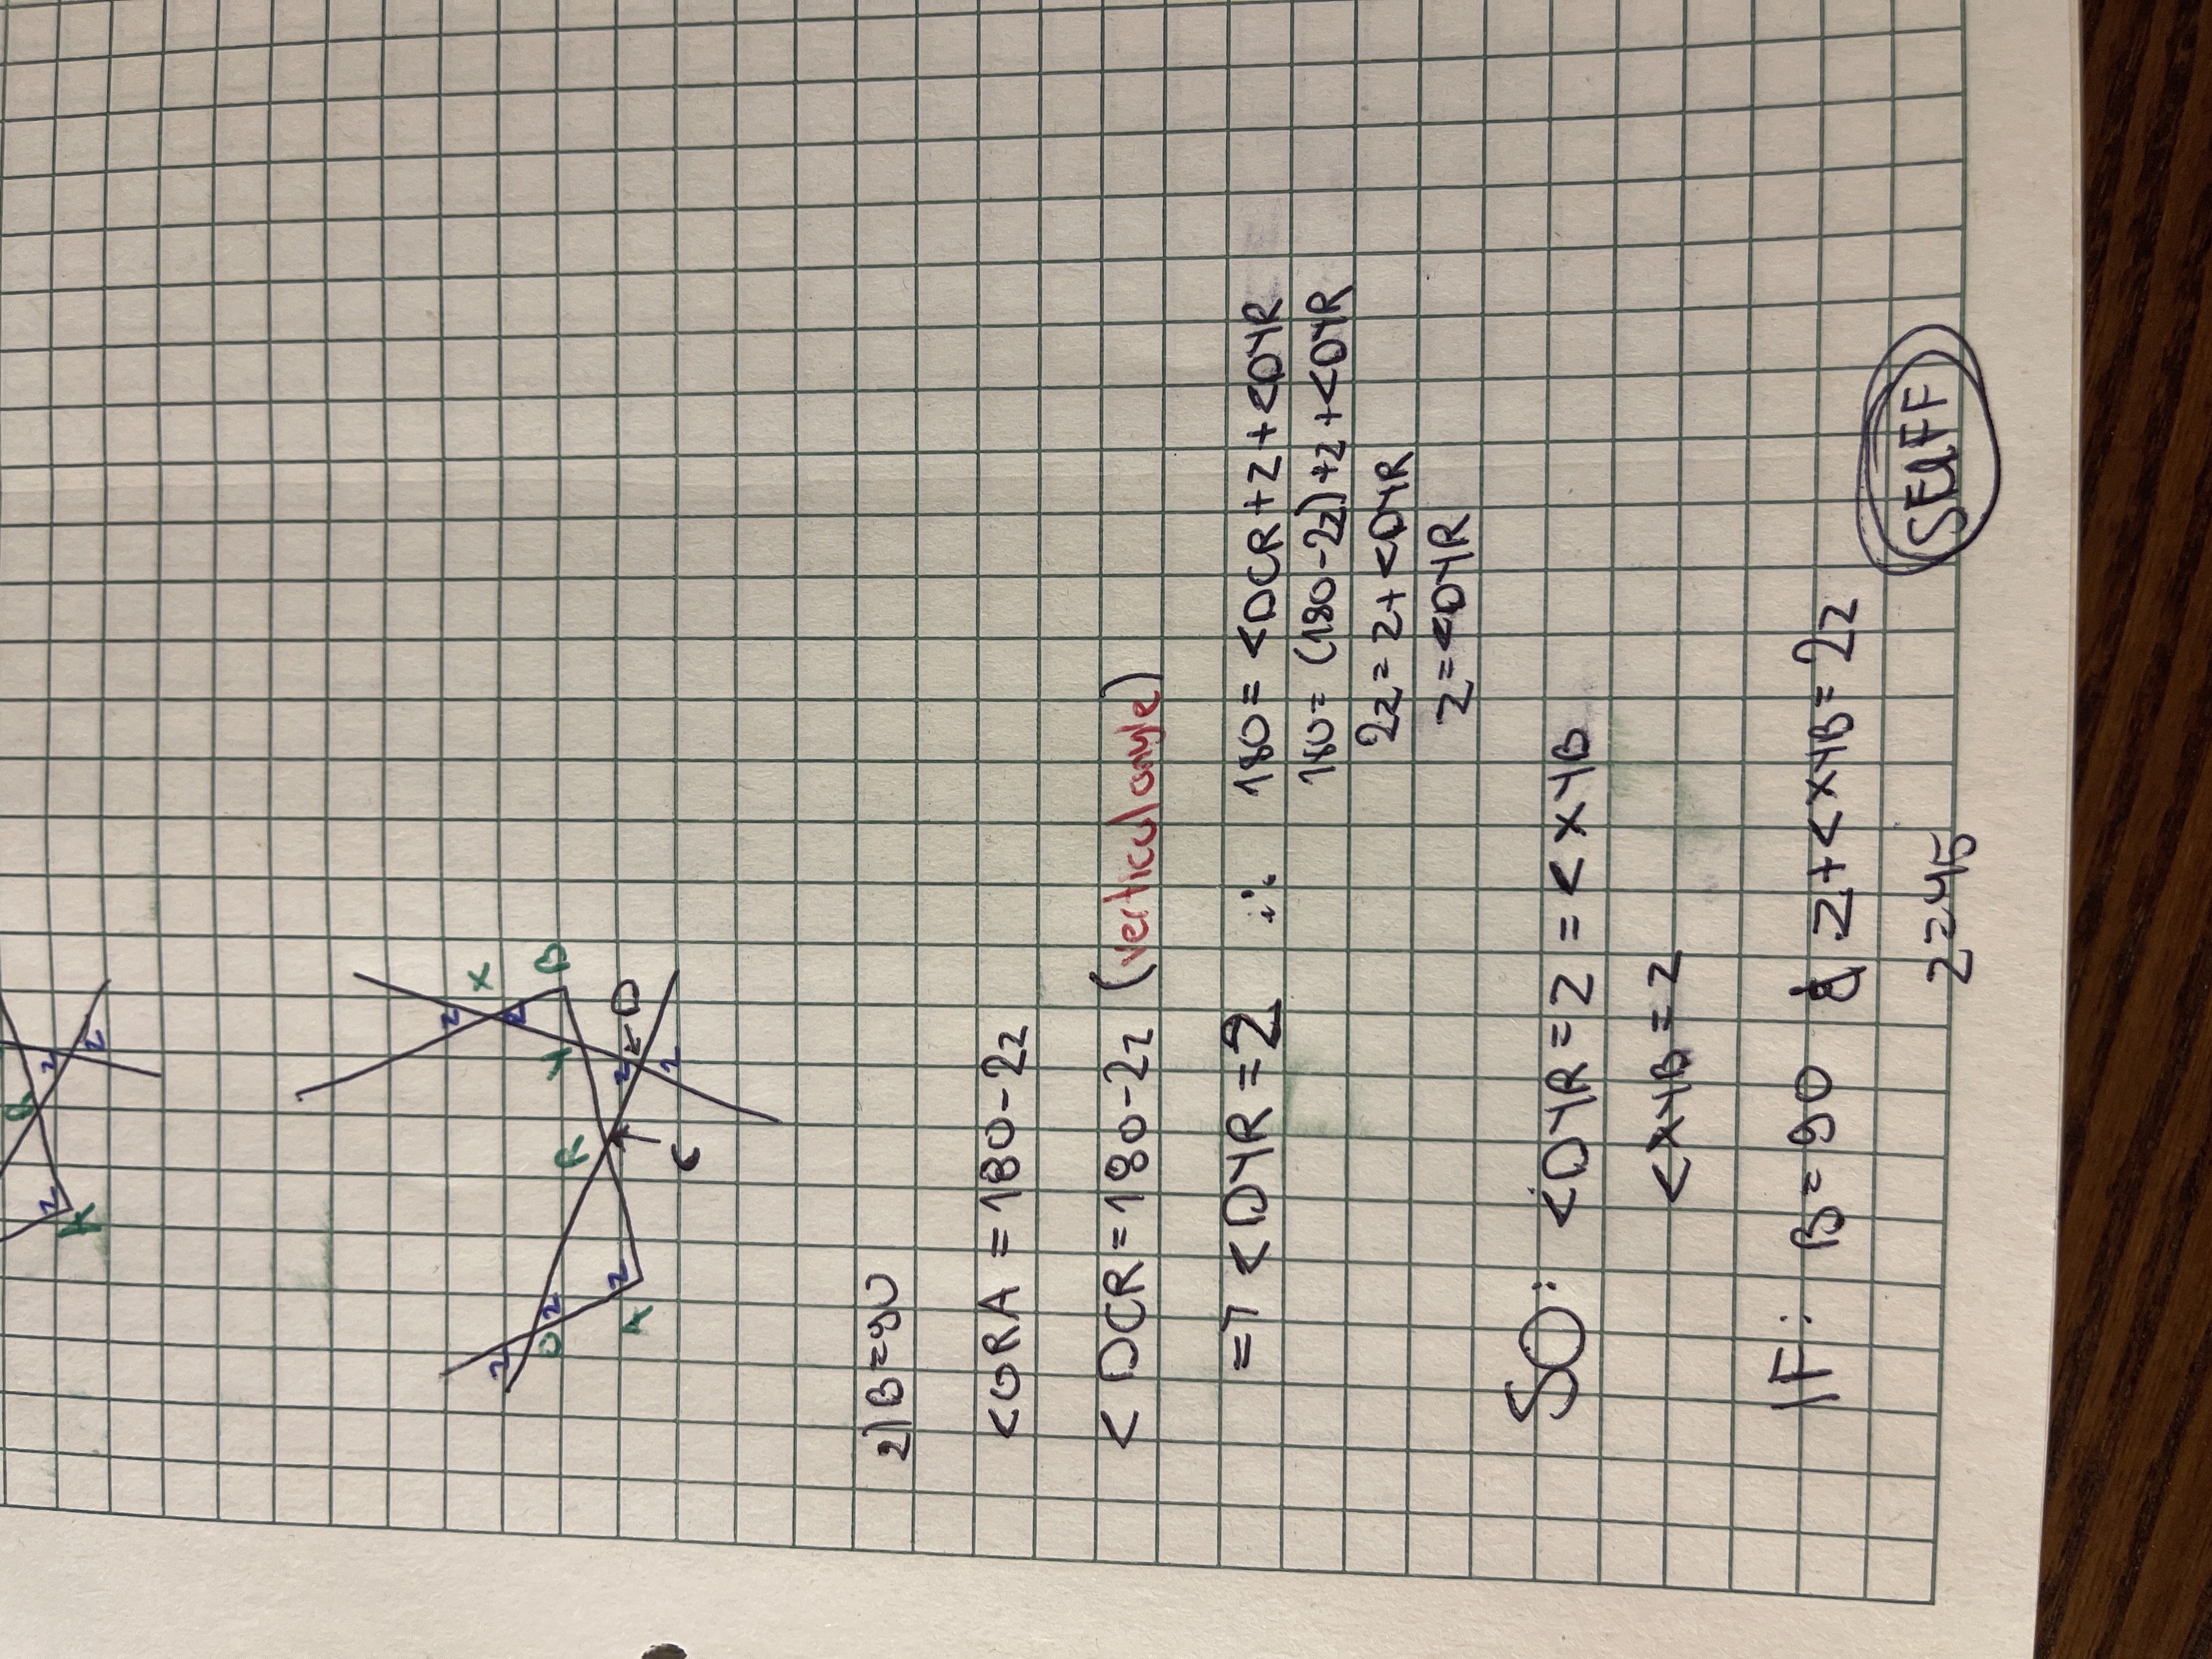 B
z
z
z
A
X
z
z
B
Y
D
z
z
R
C
z
z
O
z
A
2) B=90
<ORA = 180-2z
<DCR = 180-2z (vertical angle)
=7 <DYR = z ∴ 180 = <DCR+z+<DYR
180 = (180-2z)+z+<DYR
2z = z+<DYR
z = <DYR
SO: <DYR = z = <XYB
<XYB = z
IF: B=90 & z+<XYB = 2z
z=45
SUFF